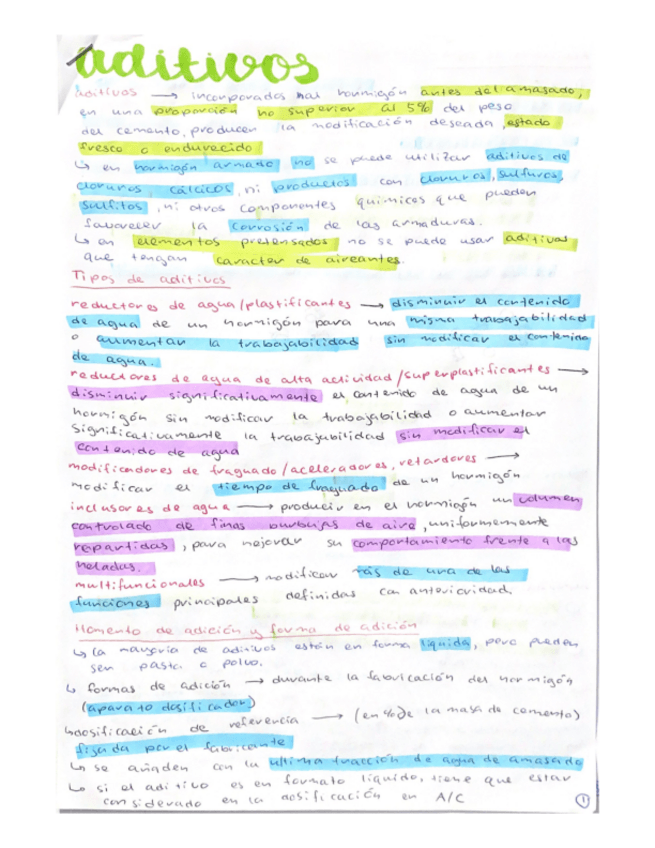 aditivos
aditivos → incorporados al hormigón antes del amasado,
en una proporción no superior al 5% del peso
del cemento, producen la modificación deseada, estado
fresco o endurecido
↳ en hormigón armado no se puede utilizar aditivos de
cloruros cálcicos, ni productos con cloruros, sulfuros,
sulfitos, ni otros componentes químicos que puedan
favorecer la corrosión de las armaduras.
↳ en elementos pretensados no se puede usar aditivos
que tengan caracter de aireantes.
Tipos de aditivos
reductores de agua/plastificantes → disminuir el contenido
de agua de un hormigón para una misma trabajabilidad
o aumentar la trabajabilidad sin modificar el contenido
de agua.
reductores de agua de alta actividad/superplastificantes →
disminuir significativamente el contenido de agua de un
hormigón sin modificar la trabajabilidad o aumentar
significativamente la trabajabilidad sin modificar el
contenido de agua
modificadores de fraguado/aceleradores, retardores →
modificar el tiempo de fraguado de un hormigón
inclusores de agua → producir en el hormigón un volumen
controlado de finas burbujas de aire, uniformemente
repartidas, para mejorar su comportamiento frente a las
heladas.
multifuncionales → modificar más de una de las
funciones principales definidas con anterioridad.
Momento de adición y forma de adición
↳ la mayoría de aditivos están en forma líquida, pero pueden
ser pasta o polvo.
↳ formas de adición → durante la fabricación del hormigón
(aparato dosificador)
↳ dosificación de referencia → (en % de la masa de cemento)
fijada por el fabricante
↳ se añaden con la ultima fracción de agua de amasado
↳ si el aditivo es en formato líquido, tiene que estar
considerado en la dosificación en A/C
1